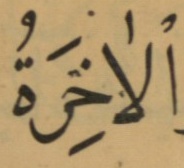 اَلْاٰخِرَةُ